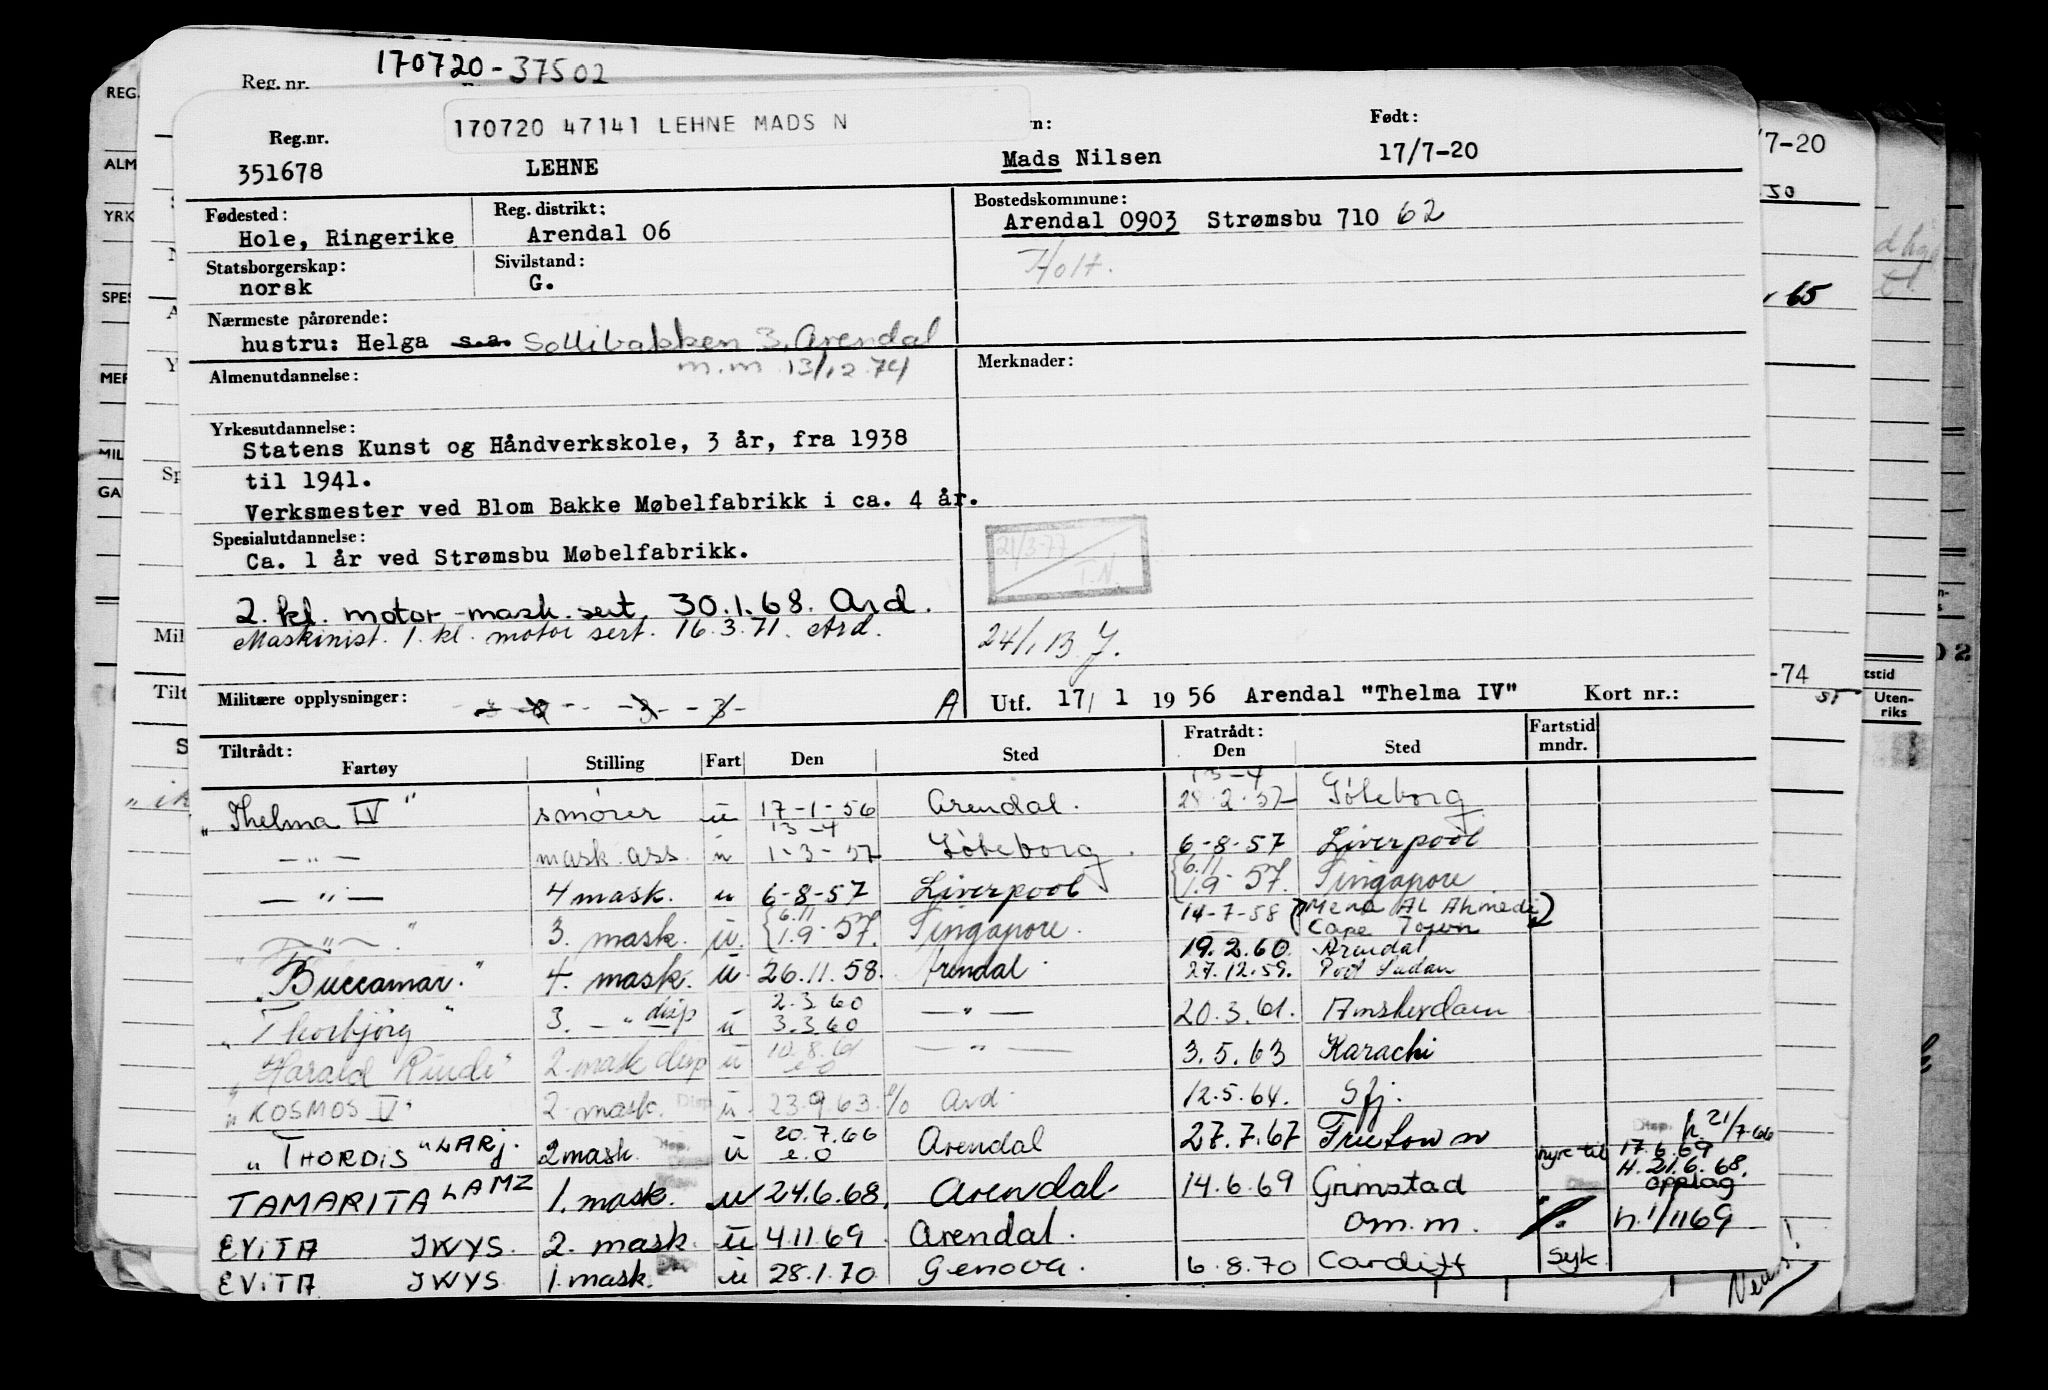 Reg. nr. 170720-37502
170720 47141 LEHNE MADS N
Reg.nr. n: Født:
351678 LEHNE Mads Nilsen 17/7-20
Fødested: Reg. distrikt: Bostedskommune:
Hole, Ringerike Arendal 06 Arendal 0903 Strømsbu 710 62
Statsborgerskap: Sivilstand: Holt.
norsk G.
Nærmeste pårørende:
hustru: Helga s.a. Sollibakken 3, Arendal
m.m 13/12 74
Almenutdannelse: Merknader:
Yrkesutdannelse:
Statens Kunst og Håndverkskole, 3 år, fra 1938
til 1941.
Verksmester ved Blom Bakke Møbelfabrikk i ca. 4 år.
Spesialutdannelse:
Ca. 1 år ved Strømsbu Møbelfabrikk.
21/3-77
T.N.
2. kl. motor-mask.sert. 30.1.68. Ard.
Maskinist. 1. kl. motor sert. 16.3.71. Ard.
Militære opplysninger: A Utf. 17/ 1 19 56 Arendal "Thelma IV" Kort nr.:
Tiltrådt: Fratrådt: Fartstid
Fartøy Stilling Fart Den Sted Den Sted mndr.
"Thelma IV" smører u 17-1-56 Arendal. 13-4 28-2-57 Göteborg
—"— mask.ass. u 13-4 1-3-57 Göteborg. 6-8-57 Liverpool
—"— 4 mask. u 6-8-57 Liverpool {6.11 1.9-57. Singapore
—"— 3. mask. u. {6.11 1.9-57. Singapore. 14-7-58 (Mena AL Ahmedi)
Cape Town
19.2.60. Arendal
"Buccamar." 4. mask. u 26.11.58. Arendal 27.12.59. Port Sudan
"Thorbjørg" 3. —"— disp u 2.3.60 3.3.60 —"— 20.3.61. Amsterdam
"Harald Rinde" 2 mask disp u 10.8.61 e.o —"— 3.5.63 Karachi
"KOSMOS V" 2 mask. Disp u 23.9.63. Ard. 12.5.64. Sfj.
"THORDIS" LARJ. 2 mask. u 20.7.66 e.o Arendal 27.7.67 Freetown Disp. h. 21/7-66
hyre til 17.6.69
H. 21.6.68.
TAMARITA LAMZ 1. mask. u 24.6.68. Arendal 14.6.69 Grimstad opplag
EVITA JWYS. 2. mask. u 4.11.69. Arendal. om.m. h. 1/1169
EVITA JWYS 1. mask. u 28.1.70 Genova. 6.8.70 Cardiff syk
REG.
ALM
YRK
SPES
MER
MIL
GA
Mil
Tilt
7-20
65
-74
tstid
Uten-
riks